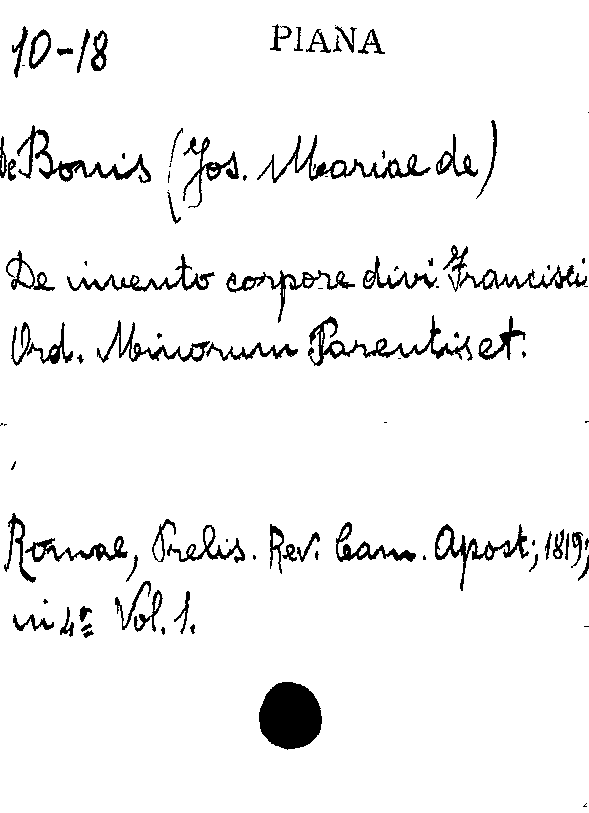 10-18 PIANA
De Bonis (Jos. Mariae de)
De invento corpore divi Francisci
Ord. Minorum Parentis et.
Romae, Prelis. Rev. Cam. Apost; 1819;
in 4º Vol. 1.